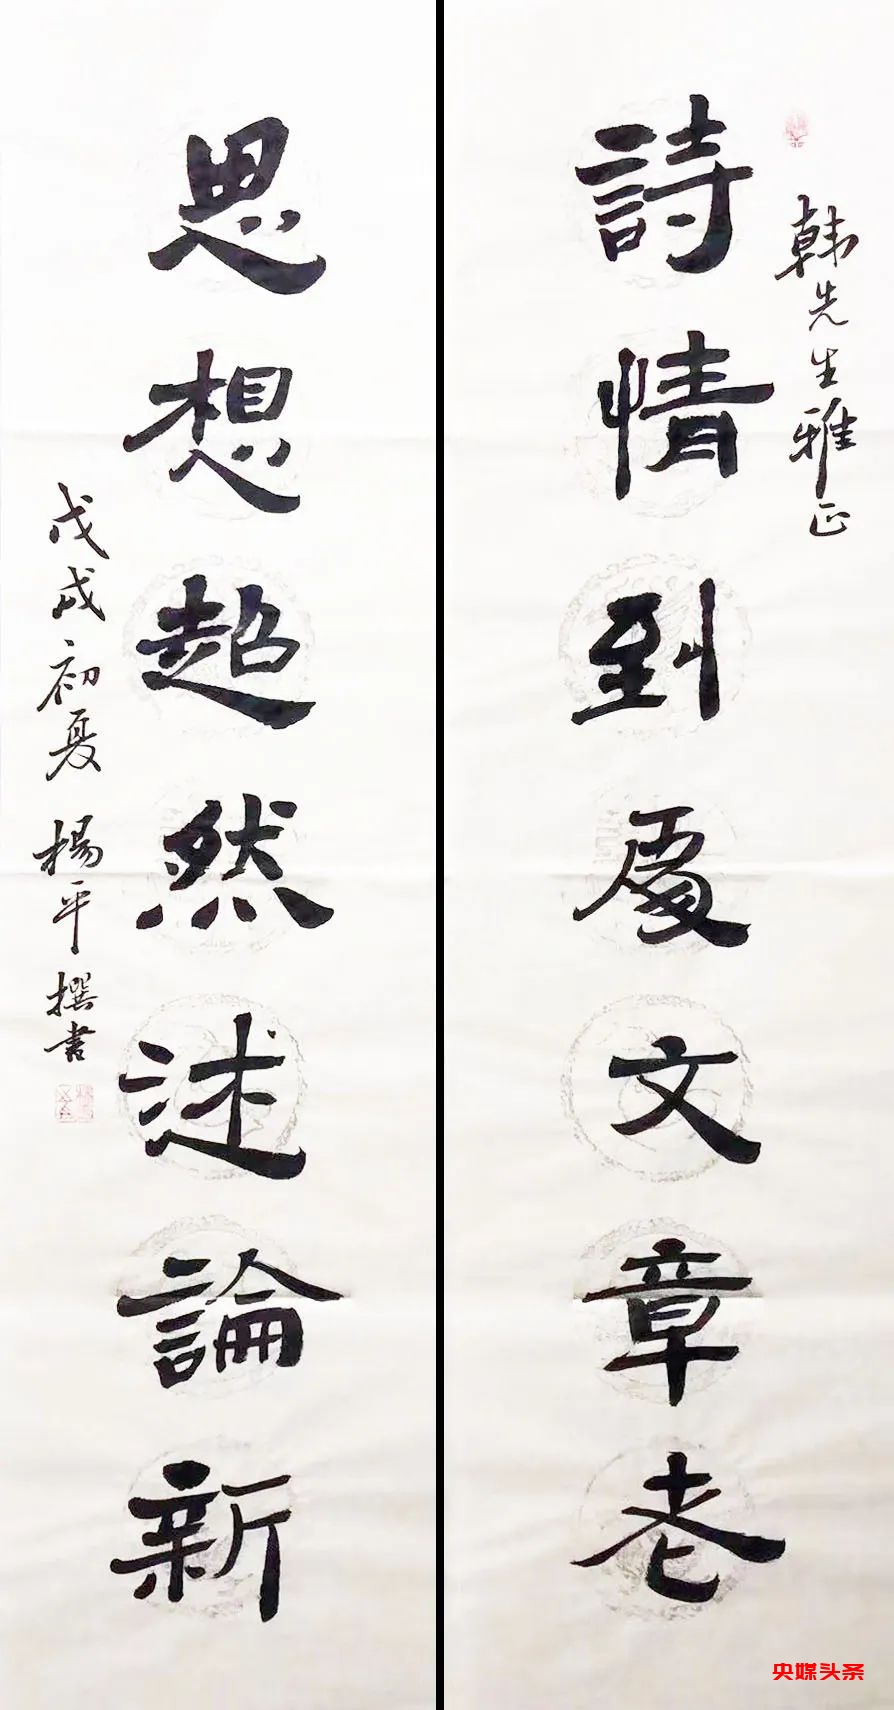 韩先生雅正
詩情到處文章老
思想超然述論新
戊戌初夏 楊平撰書
央媒头条